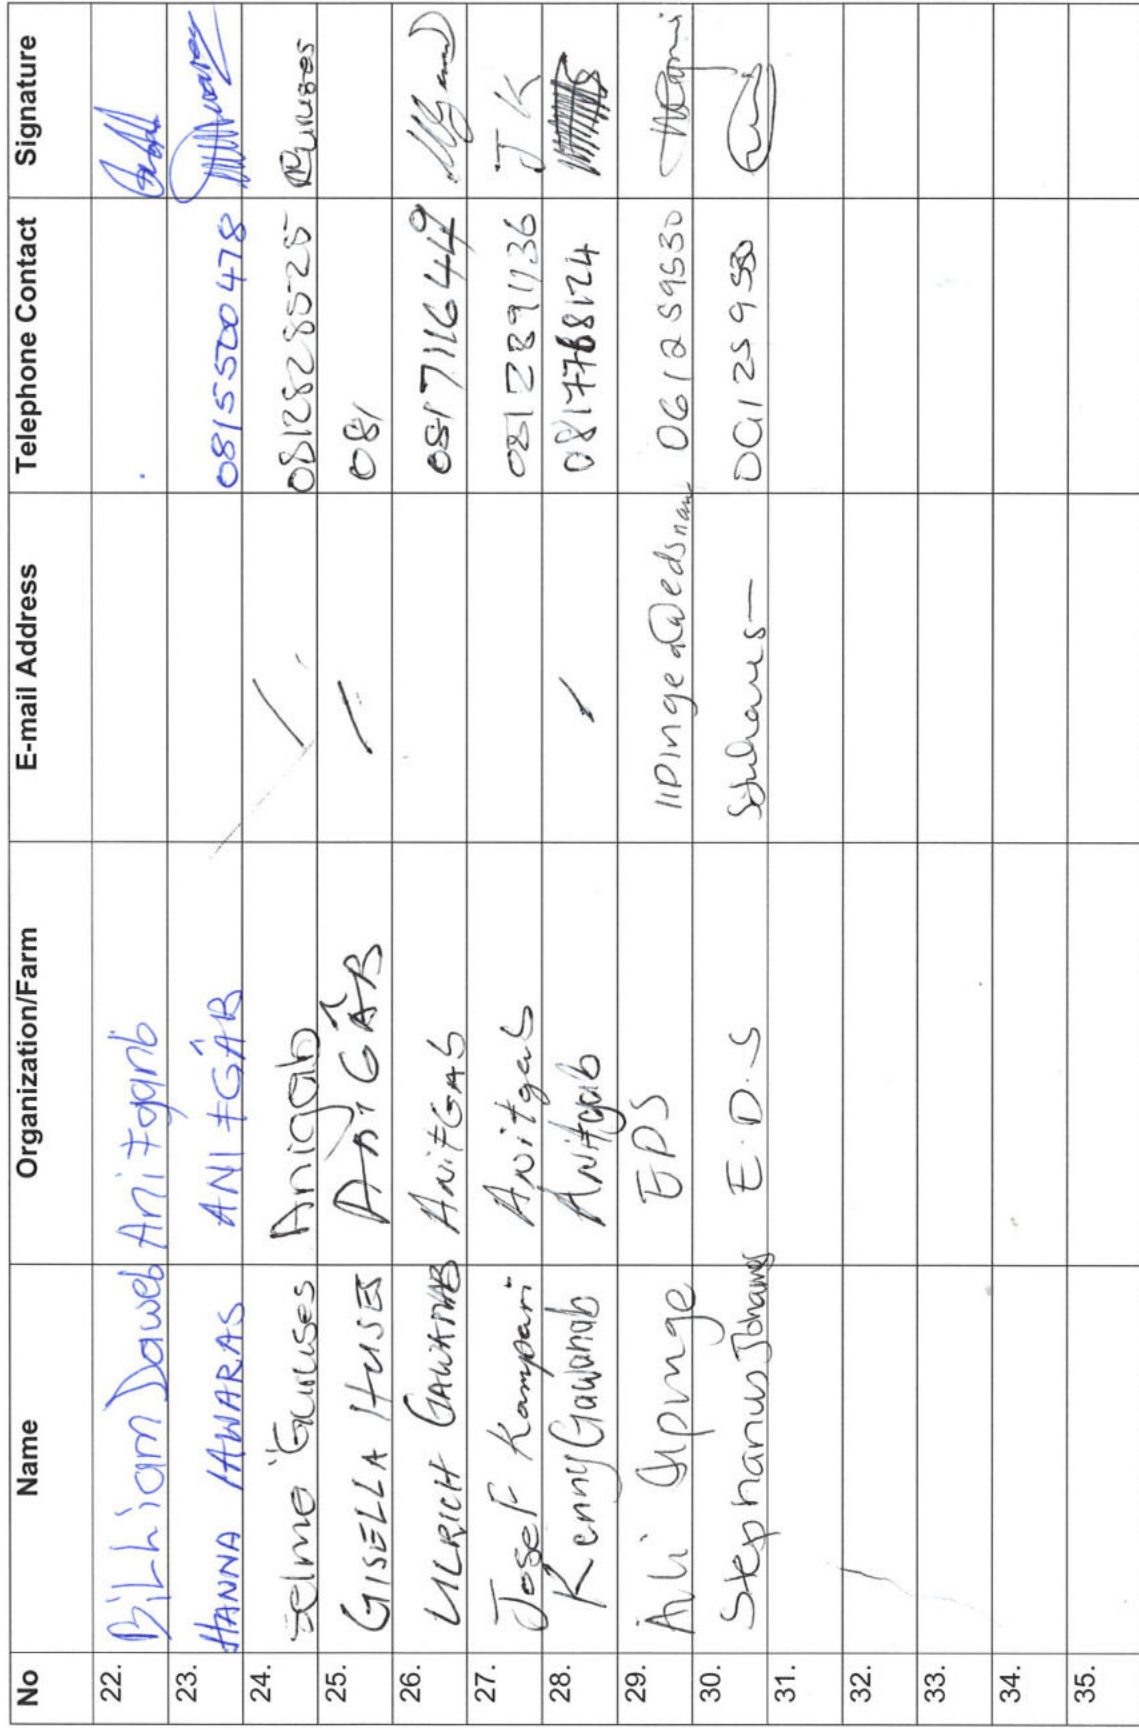 No Name Organization/Farm E-mail Address Telephone Contact Signature
22. Billhiam Daweb Aniǂganb
23. HANNA HAWARAS ANIǂGÂB 0815500478
24. Selma Guruses Anigab / 0812828525 Guruses
25. GISELLA HUSES ANIGÂB / 081
26. ULRICH GAWANAB AniǂGAb 0817116449
27. Josef Kampari Aniǂgab 0812891136 J K
28. Kenny Gawanab Aniǂgab / 0817768124
29. Aili Iipinge EDS 0612 59530
30. Stephanus Johannes E.D.S
31.
32.
33.
34.
35.